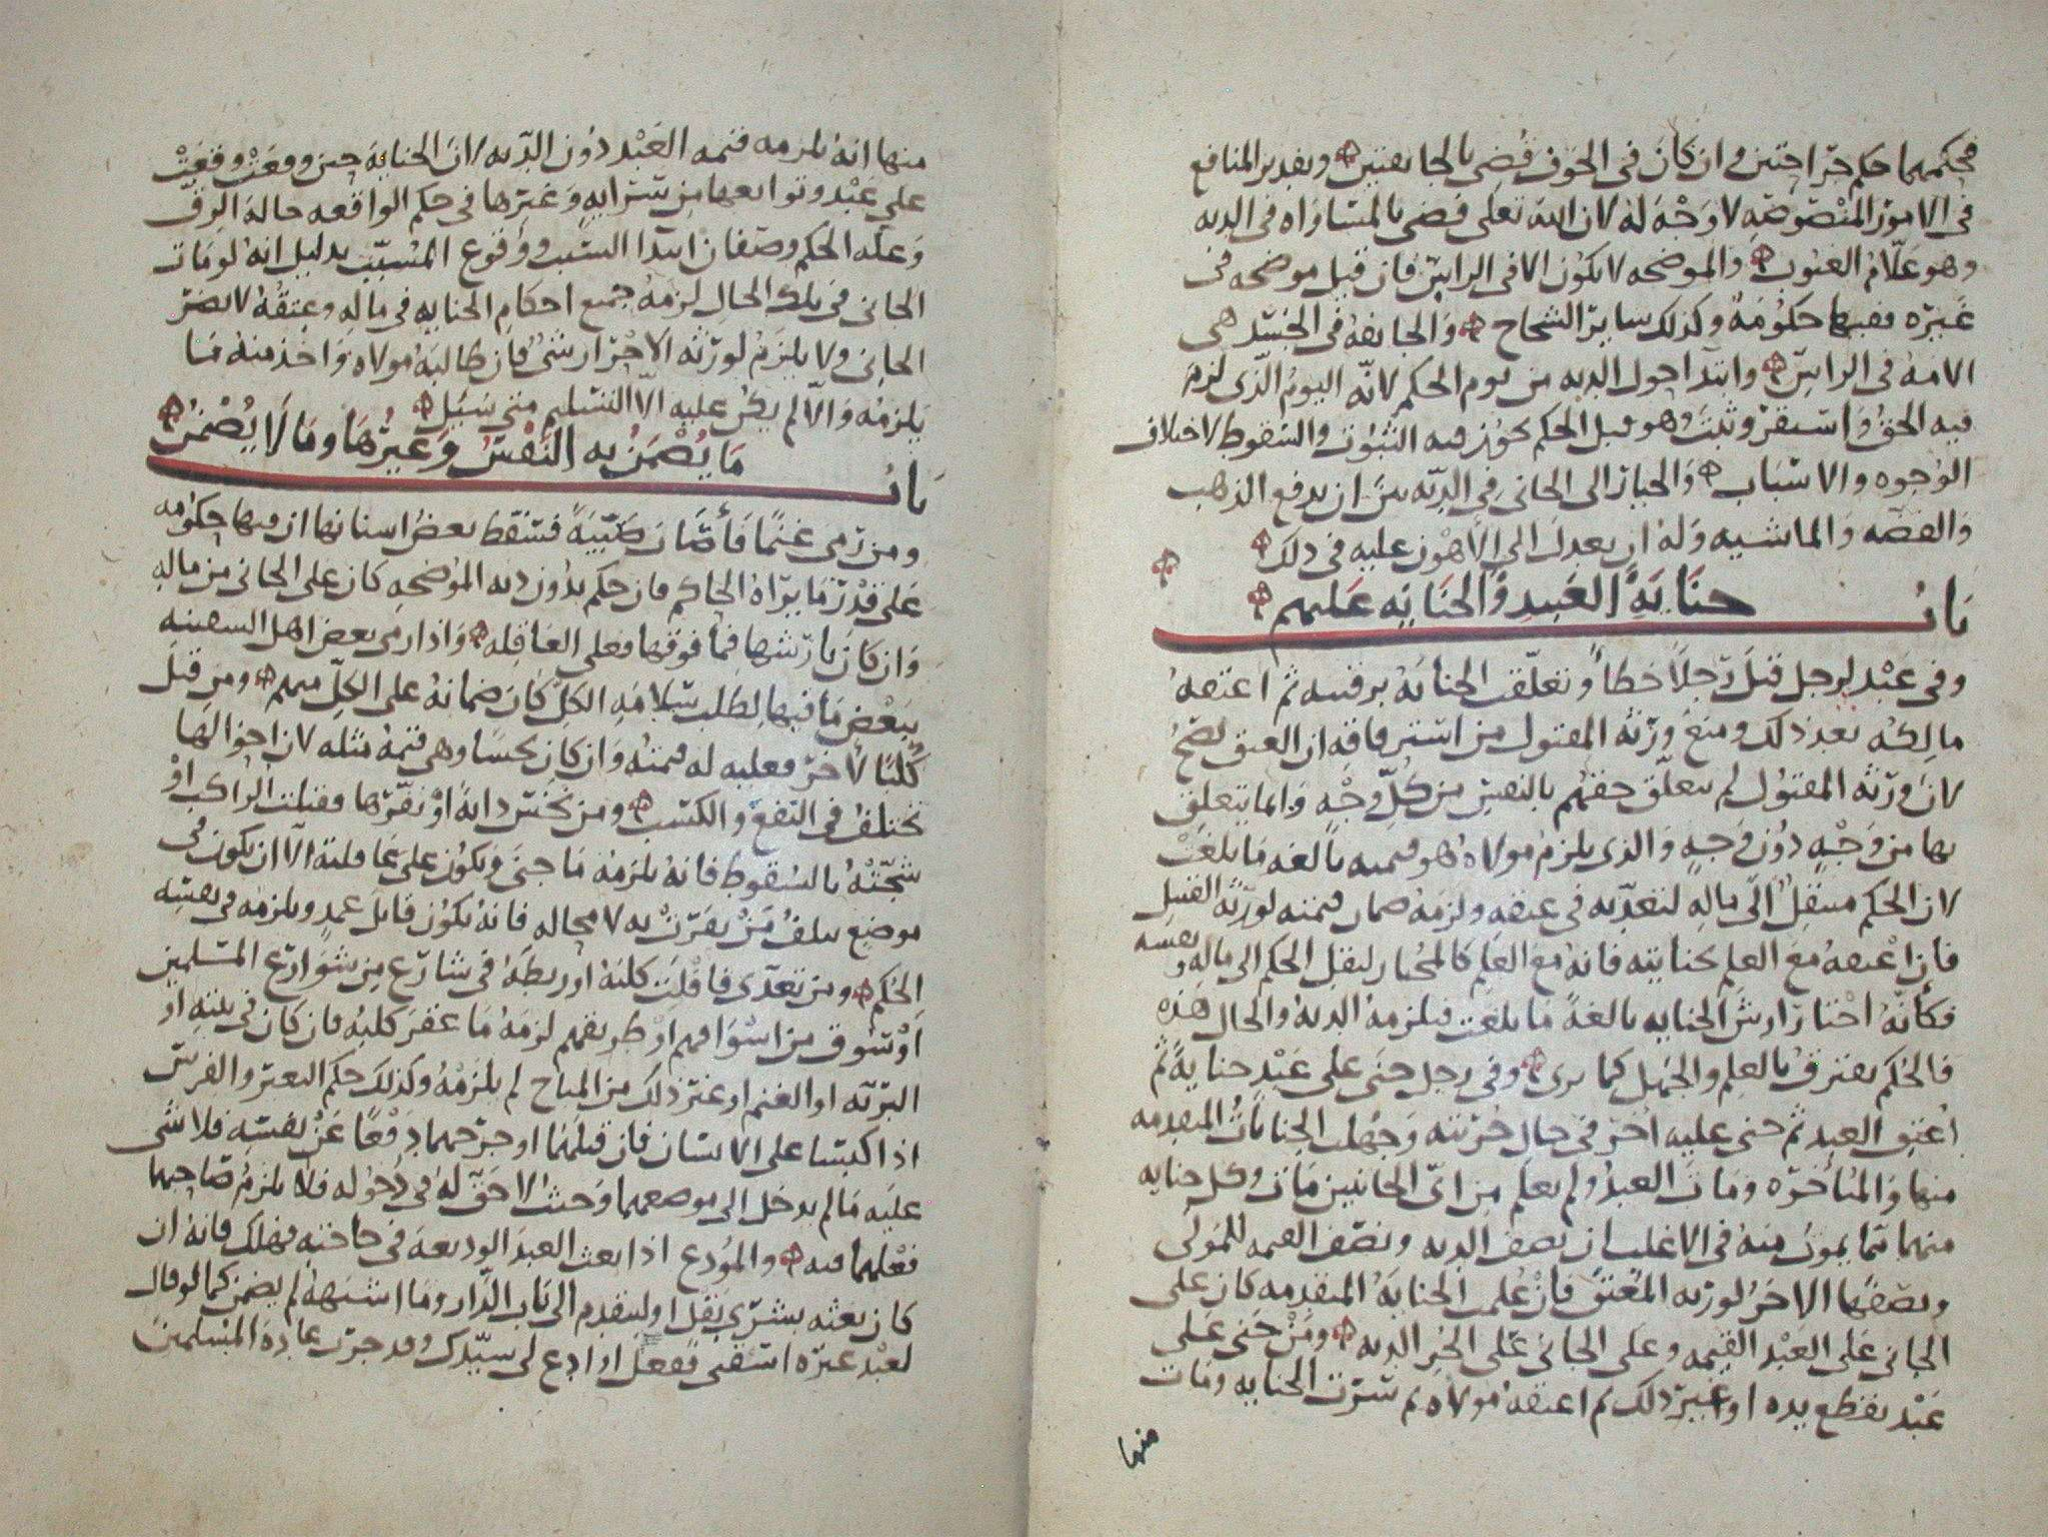 فحكمهما حكم جراحتين وان كان في الجوف قضي بالجايفتين وتقدير المنافع
في الامور المنصوصه لا وجه له لان الله تعلى قضى بالمساواه في الديه
وهو علام الغيوب والموضحه لا يكون الا في الراس فان قيل موضحه في
غيره ففيها حكومه وكذلك ساير الشجاج والجايفه في الجسد هي
الامه في الراس وابتدا حول الديه من يوم الحكم لانه اليوم الذي لزم
فيه الحق واستقر وثبت وهو قبل الحكم يجوز فيه الثبوت والسقوط لاختلاف
الوجوه والاسباب والخيار الى الجاني في الديه بين ان يدفع الذهب
والفضه والماشيه وله ان يعدل الى الاهون عليه في ذلك
باب جناية العبيد والجنايه عليهم
وفي عبد لرجل قتل رجلا خطأ وتعلقت الجنايه برقبته ثم اعتقه
مالكه بعد ذلك ومنع ورثه المقتول من استرقاقه ان العتق يصح
لان ورثه المقتول لم يتعلق حقهم بالنفس من كل وجه وانما يتعلق
بها من وجه دون وجه والذي يلزم مولاه هو قيمته بالغه ما بلغت
لان الحكم منتقل الى ماله لتعديه في عتقه ولزمه ضمان قيمته لورثه القتيل
فان اعتقه مع العلم بجنايته فانه مع العلم كالمختار لنقل الحكم الى ماله ونفسه
فكأنه اختار ارش الجنايه بالغة ما بلغت فيلزمه الديه والحال هذه
فالحكم يفترق بالعلم والجهل كما ترى وفي رجل جنى على عبد جناية ثم
اعتق العبد ثم جنى عليه اخر في حال حريته وجهلت الجنايات المتقدمه
منها والمتأخره ومات العبد ولم يعلم من اي الجانيين مات وكل جنايه
منهما مما يموت منه في الاغلب ان نصف الديه ونصف القيمه للمولى
ونصفها الاخر لورثه المعتق فان علمت الجنايه المتقدمه كان على
الجاني على العبد القيمه وعلى الجاني على الحر الديه ومن جنى على
عبد بقطع يده او غير ذلك ثم اعتقه مولاه ثم سرت الجنايه ومات
منها
منها انه يلزمه قيمه العبد دون الديه لان الجنايه حين وقعت وقعت
على عبد وتوابعها من سرايه وغيرها في حكم الواقعه حالة الرق
وعله الحكم وصفان ابتدا السبب ووقوع المسبب بدليل انه لو مات
الجاني في تلك الحال لزمه جميع احكام الجنايه في ماله وعتقه لا يضر
الجاني ولا يلزم لورثه الاحرار شي فان طالبه مولاه واخذ منه ما
يلزمه والا لم يكن عليه الا التسليم متى سيل
باب ما يضمن به النفس وغيرها وما لا يضمن
ومن رمى غنما فأصاب صبية فسقط بعض اسنانها ان فيها حكومه
على قدر ما يراه الحاكم فان حكم بدون ديه الموضحه كان على الجاني من ماله
وان كان بارشها فما فوقها فعلى العاقله واذا رمى بعض اهل السفينه
ببعض ما فيها لطلب سلامه الكل كان ضمانه على الكل منهم ومن قتل
كلبا لاخر فعليه له قيمته وان كان نجسا وهي قيمة مثله لان احوالها
تختلف في النفع والكسب ومن نخس دابة او نفرها فقتلت الراكب او
شجته بالسقوط فانه يلزمه ما جنى ويكون على عاقلته الا ان يكون في
موضع يتلف من نفرت به لا محاله فانه يكون قاتل عمد ويلزمه في نفسه
الحكم ومن تعدى فافلت كلبه او ربطه في شارع من شوارع المسلمين
او سوق من اسواقهم او طريقهم لزمه ما عقر كلبه فان كان في بيته او
البريه او الغنم او غير ذلك من المباح لم يلزمه وكذلك حكم البعير والفرس
اذا اكبتسا على الانسان فان قتلهما او جرحهما دفعا عن نفسه فلا شي
عليه ما لم يدخل الى موضعهما وحيث لا حق له في دخوله فلا يلزم صاحبهما
فعلهما فيه والمودع اذا بعث العبد الوديعه في حاجته فهلك فانه ان
كان بعثه بشري بقل او ليتقدم الى باب الدار وما اشبهه لم يضمن كما لو قال
لعبد غيره اسقني ففعل او ادع لي سيدك وقد جرت عادة المسلمين